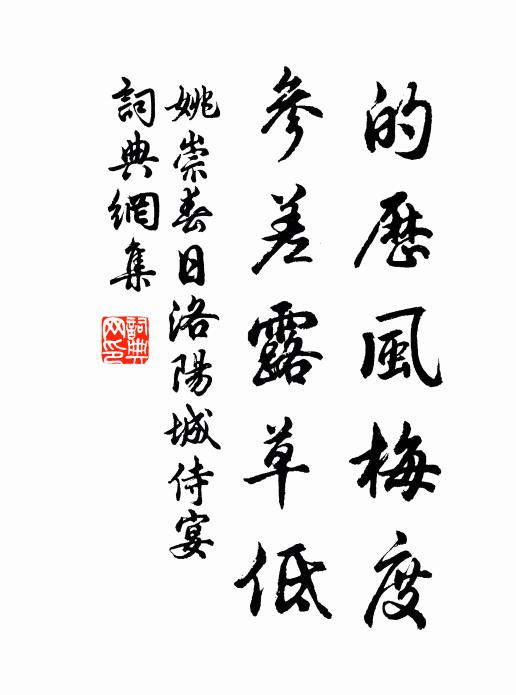 的歷風梅度
參差露草低
姚崇春日洛陽城侍宴
詞典網集
詞典
网印